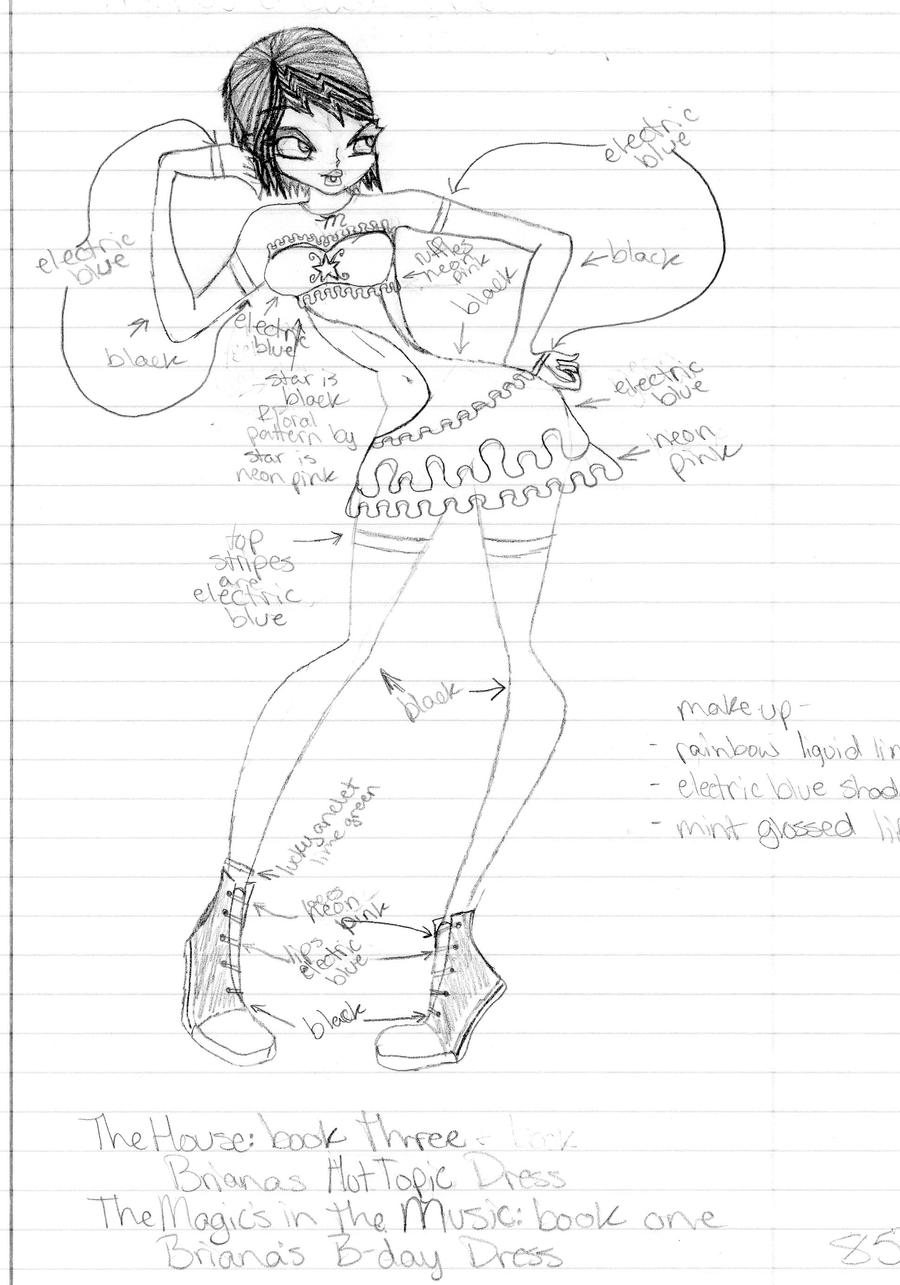 electric
blue
electric
blue
black
ruffles
neon
pink
black
electric
blue
black
star is
black
floral
pattern by
star is
neon pink
electric
blue
neon
pink
top
stripes
are
electric
blue
black
make-up-
- rainbow liquid lin
- electric blue shad
- mint glossed li
lucky anclet
lime green
neon
pink
lips
electric
blue
black
m
The House: book three -
Briana's Hot Topic Dress
The Magic's in the Music: book one
Briana's B-day Dress
85